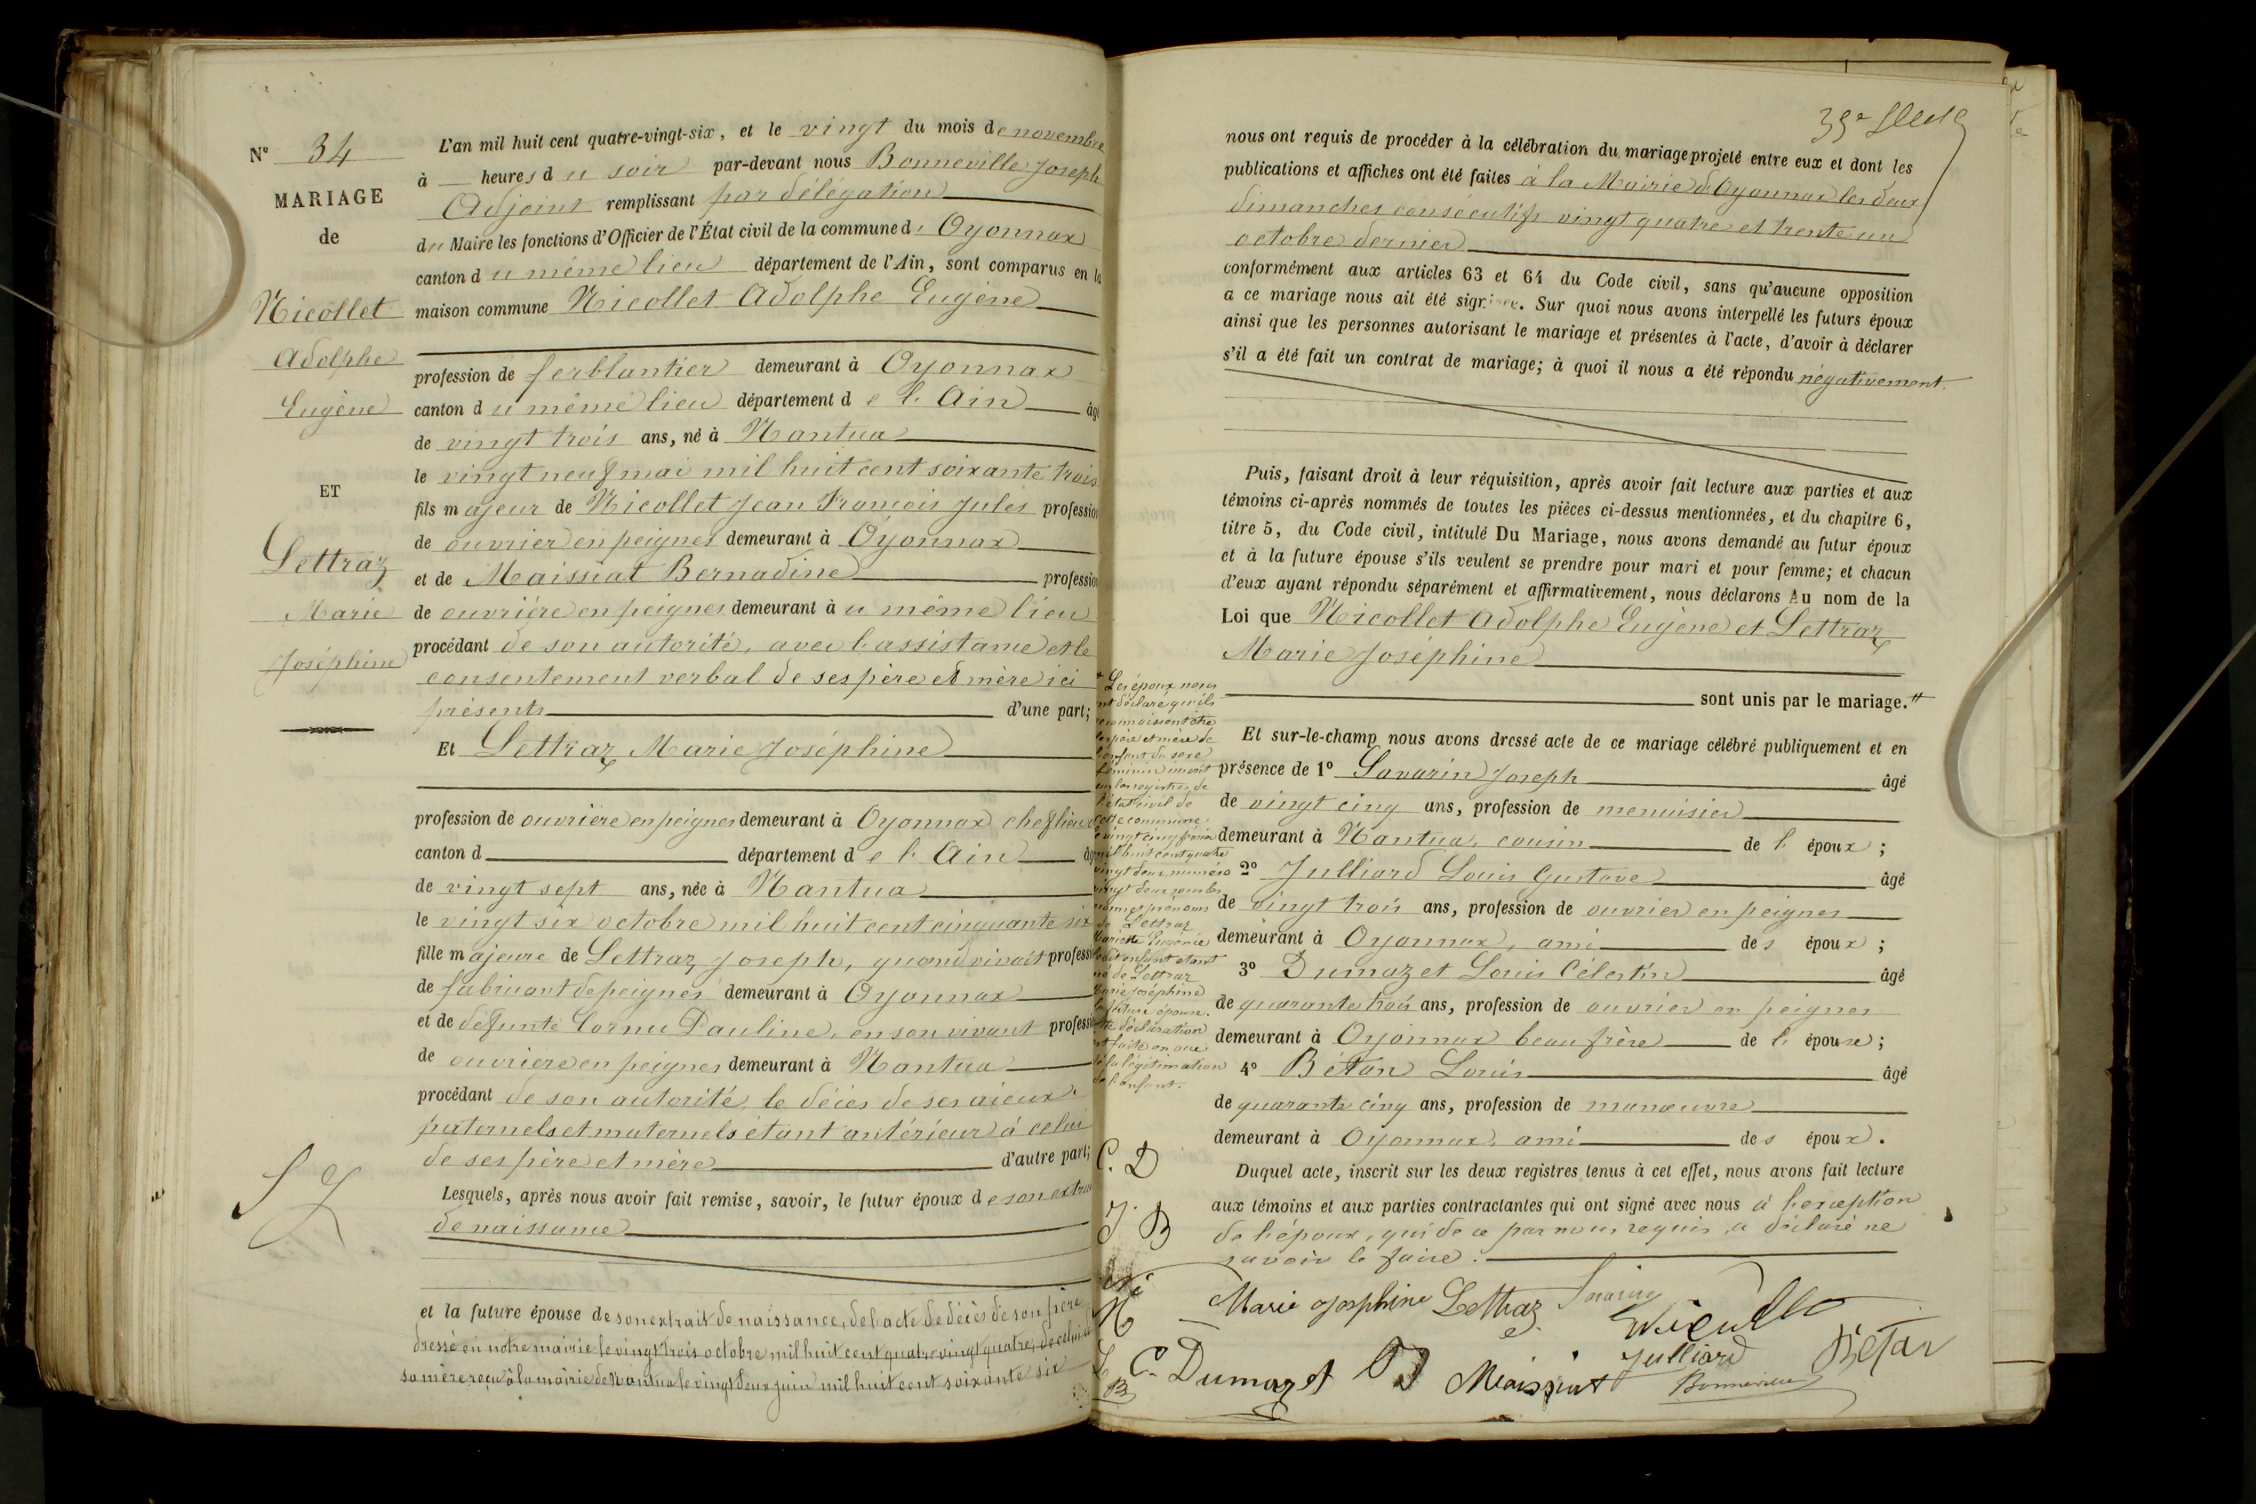 N° 34
MARIAGE
de
Nicollet
Adolphe
Eugène
ET
Lettraz
Marie
Joséphine
L'an mil huit cent quatre-vingt-six, et le vingt du mois de novembre
à — heures du soir par-devant nous Bonneville Joseph
Adjoint remplissant par délégation
du Maire les fonctions d'Officier de l'État civil de la commune d' Oyonnax
canton du même lieu département de l'Ain, sont comparus en la
maison commune Nicollet Adolphe Eugène
profession de ferblantier demeurant à Oyonnax
canton du même lieu département de l'Ain âgé
de vingt trois ans, né à Nantua
le vingt neuf mai mil huit cent soixante trois
fils majeur de Nicollet Jean François Jules profession
de ouvrier en peignes demeurant à Oyonnax
et de Maissiat Bernadine profession
de ouvrière en peignes demeurant à u même lieu
procédant de son autorité, avec l'assistance et le
consentement verbal de ses père et mère ici
présents d'une part;
Et Lettraz Marie Joséphine
profession de ouvrière en peignes demeurant à Oyonnax chef lieu de
canton d département de l'Ain âgée
de vingt sept ans, née à Nantua
le vingt six octobre mil huit cent cinquante six
fille majeure de Lettraz Joseph, quand vivait profession
de fabricant de peignes demeurant à Oyonnax
et de défunte Cornu Pauline, en son vivant profession
de ouvrière en peignes demeurant à Nantua
procédant de son autorité, le décès de ses aïeux
paternels et maternels étant antérieur à celui
de ses père et mère d'autre part;
Lesquels, après nous avoir fait remise, savoir, le futur époux de son extrait
de naissance
et la future épouse de son extrait de naissance, de l'acte de décès de son père
dressé en notre mairie le vingt trois octobre mil huit cent quatre vingt quatre, de celui de
sa mère reçu à la mairie de Nantua le vingt deux juin mil huit cent soixante six
S L
Les époux nous
ont déclaré qu'ils
reconnaissent être
les père et mère de
l'enfant du sexe
féminin inscrit
sur les registres de
l'état civil de
cette commune
le vingt cinq février
mil huit cent quatre
vingt deux numéro
vingt deux sous les
noms et prénoms
de Lettraz
Mariette Eugénie
ledit enfant étant
né de Lettraz
Marie Joséphine
la future épouse.
Cette déclaration
est faite en vue
de la légitimation
de l'enfant.
C. D
J. B
N
B
nous ont requis de procéder à la célébration du mariage projeté entre eux et dont les
publications et affiches ont été faites à la Mairie d'Oyonnax les deux
dimanches consécutifs vingt quatre et trente un
octobre dernier
conformément aux articles 63 et 64 du Code civil, sans qu'aucune opposition
a ce mariage nous ait été signifiée. Sur quoi nous avons interpellé les futurs époux
ainsi que les personnes autorisant le mariage et présentes à l'acte, d'avoir à déclarer
s'il a été fait un contrat de mariage; à quoi il nous a été répondu négativement.
Puis, faisant droit à leur réquisition, après avoir fait lecture aux parties et aux
témoins ci-après nommés de toutes les pièces ci-dessus mentionnées, et du chapitre 6,
titre 5, du Code civil, intitulé Du Mariage, nous avons demandé au futur époux
et à la future épouse s'ils veulent se prendre pour mari et pour femme; et chacun
d'eux ayant répondu séparément et affirmativement, nous déclarons Au nom de la
Loi que Nicollet Adolphe Eugène et Lettraz
Marie Joséphine
sont unis par le mariage."
Et sur-le-champ nous avons dressé acte de ce mariage célébré publiquement et en
présence de 1° Savarin Joseph âgé
de vingt cinq ans, profession de menuisier
demeurant à Nantua, cousin de l'époux;
2° Julliard Louis Gustave âgé
de vingt trois ans, profession de ouvrier en peignes
demeurant à Oyonnax, ami des époux;
3° Dumazet Louis Célestin âgé
de quarante trois ans, profession de ouvrier en peignes
demeurant à Oyonnax beau frère de l'épouse;
4° Bétan Louis âgé
de quarante cinq ans, profession de manœuvre
demeurant à Oyonnax, ami des époux.
Duquel acte, inscrit sur les deux registres tenus à cet effet, nous avons fait lecture
aux témoins et aux parties contractantes qui ont signé avec nous à l'exception
de l'époux, qui de ce par nous requis, a déclaré ne
savoir le faire.
Marie Josephine Lettraz Savarin
Nicollet
C. Dumazet Maissiat Julliard Bétan
Bonneville